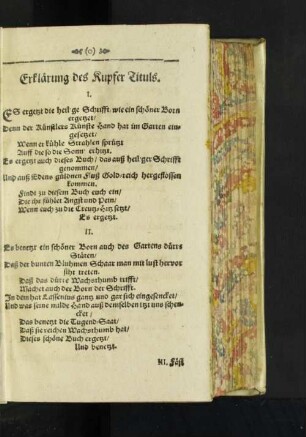 (o)
Erklärung des Kupfer Tituls.
I.
ES ergetzt die heil'ge Schrifft wie ein schöner Born
ergetzet/
Denn der Künstlers Künste Hand hat im Garten ein-
gesetzet/
Wenn er kühle Strahlen sprützt
Auff die so die Sonn' erhitzt.
Es ergetzt auch dieses Buch/ das auß heil'ger Schrifft
genommen/
Und auß Edens güldnen Fluß Gold-reich hergeflossen
kommen.
Finde zu diesem Buch euch ein/
Die ihr fühlet Angst und Pein/
Wenn euch zu die Creutz-Hitz setzt/
Es ergetzt.
II.
Es benetzt ein schöner Born auch des Gartens dürre
Stäten/
Daß der bunten Bluhmen Schaar man mit lust hervor
siht treten.
Daß das dürre Wachsthumb trifft/
Machet auch der Born der Schrifft.
In dem hat Lassenius gantz und gar sich eingesencket/
Und was seine milde Hand auß demselben itzt uns schen-
cket/
Das benetzt die Tugend-Saat/
Daß sie reichen Wachsthumb hat/
Dieses schöne Buch ergetzt/
Und benetzt.